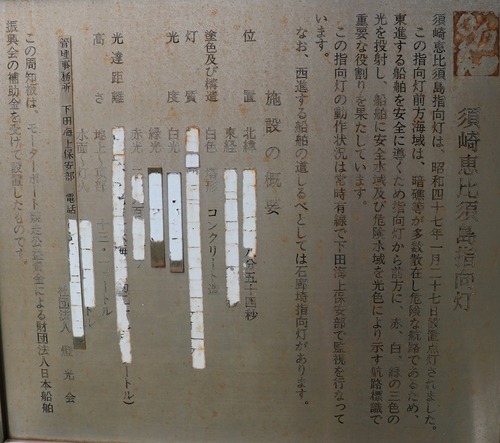 須崎恵比須島指向灯
須崎恵比須島指向灯は、昭和四十七年一月二十七日設置点灯されました。
この指向灯前方海域は、暗礁等が多数散在し危険な航路であるため、
東進する船舶を安全に導くため指向灯から前方に、赤、白、緑の三色の
光を投射し、船舶に安全水域及び危険水域を光色により示す航路標識で
重要な役割りを果たしています。
この指向灯の動作状況は常時有線で下田海上保安部で監視を行なって
います。
なお、西進する船舶の道しるべとしては石廊埼指向灯があります。
施設の概要
位置 北緯 五十四秒
東経
塗色及び構造 白色 コンクリート造
灯質
光度 白光
緑光
赤光
光達距離 ートル)
高さ 地上
水面 トル
管理事務所 下田海上保安部 電話
社団法人 燈光会
この周知板は、モーターボート競走公益資金による財団法人日本船舶
振興会の補助金を受けて設置したものです。